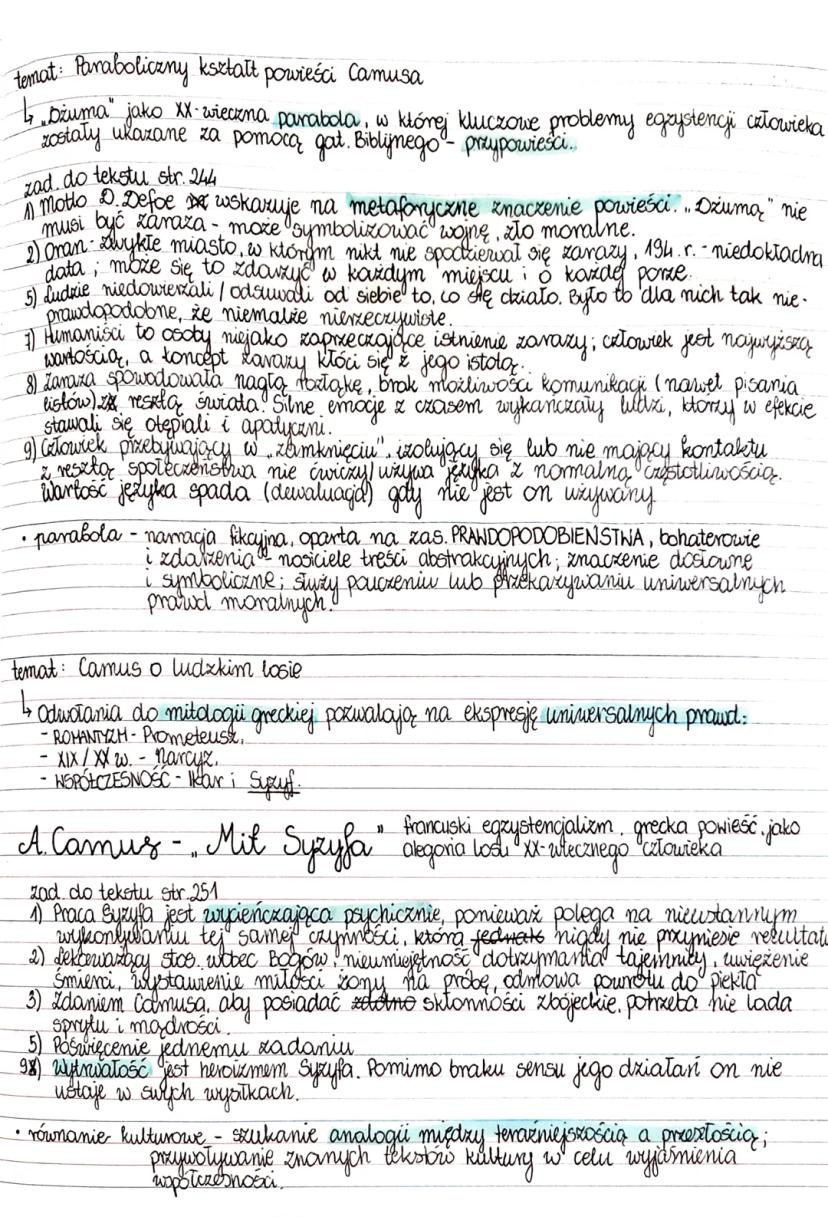 temat: Paraboliczny kształt powieści Camusa
↳ „Dżuma" jako XX-wieczna parabola, w której kluczowe problemy egzystencji człowieka
zostały ukazane za pomocą gat. Biblijnego - przypowieści.
zad. do tekstu str. 244
1) Motto D. Defoe wskazuje na metaforyczne znaczenie powieści. „Dżumą" nie
musi być zaraza - może symbolizować wojnę, zło moralne.
2) Oran - zwykłe miasto, w którym nikt nie spodziewał się zarazy, 194. r. - niedokładna
data; może się to zdarzyć w każdym miejscu i o każdej porze.
5) Ludzie niedowierzali / odsuwali od siebie to, co się działo. Było to dla nich tak nie-
prawdopodobne, że niemalże nierzeczywiste.
7) Humaniści to osoby niejako zaprzeczające istnienie zarazy; człowiek jest najwyższą
wartością, a koncept zarazy kłóci się z jego istotą.
8) Zaraza spowodowała nagłą rozłąkę, brak możliwości komunikacji (nawet pisania
listów) z resztą świata. Silne emocje z czasem wykańczały ludzi, którzy w efekcie
stawali się otępiali i apatyczni.
9) Człowiek przebywający w „zamknięciu", izolujący się lub nie mający kontaktu
z resztą społeczeństwa nie ćwiczy/używa języka z normalną częstotliwością.
Wartość języka spada (dewaluacja) gdy nie jest on używany
• parabola - narracja fikcyjna, oparta na zas. PRAWDOPODOBIEŃSTWA, bohaterowie
i zdarzenia - nosiciele treści abstrakcyjnych; znaczenie dosłowne
i symboliczne; służy pouczeniu lub przekazywaniu uniwersalnych
prawd moralnych.
temat: Camus o ludzkim losie
↳ Odwołania do mitologii greckiej pozwalają na ekspresję uniwersalnych prawd:
- ROMANTYZM - Prometeusz,
- XIX/XX w. - Narcyz,
- WSPÓŁCZESNOŚĆ - Ikar i Syzyf.
A. Camus - „Mit Syzyfa" francuski egzystencjalizm, grecka powieść, jako
alegoria losu XX-wiecznego człowieka
zad. do tekstu str. 251
1) Praca Syzyfa jest wycieńczająca psychicznie, ponieważ polega na nieustannym
wykonywaniu tej samej czynności, którą jednak nigdy nie przyniesie rezultatu
2) Lekceważący stos. wobec Bogów, nieumiejętność dotrzymania tajemnicy, uwięzienie
śmierci, wystawienie miłości żony na próbę, odmowa powrotu do piekła
3) Zdaniem Camusa, aby posiadać skłonności zbójeckie, potrzeba nie lada
sprytu i mądrości.
5) Poświęcenie jednemu zadaniu
98) Wytrwałość jest heroizmem Syzyfa. Pomimo braku sensu jego działań on nie
ustaje w swych wysiłkach.
• równanie kulturowe - szukanie analogii między teraźniejszością a przeszłością;
przywoływanie znanych tekstów kultury w celu wyjaśnienia
współczesności.